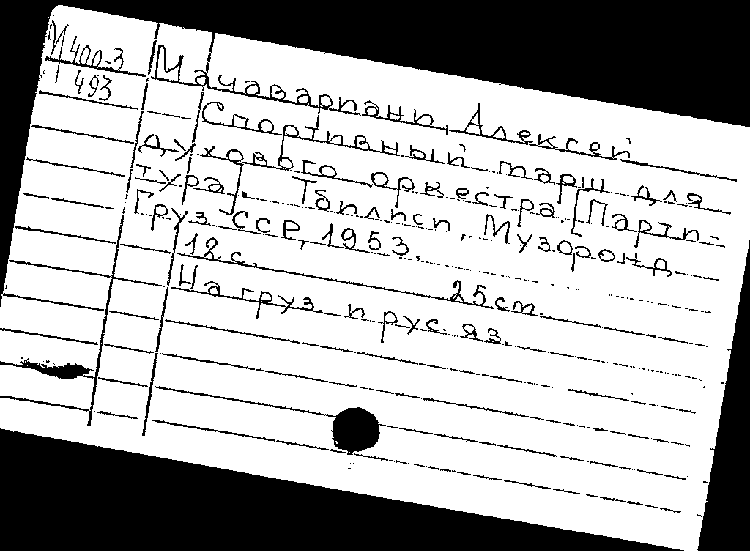 М 400-3
493
Мачавариани, Алексей
Спортивный марш для
духового оркестра. [Парти-
тура]. Тбилиси, Музфонд
Груз ССР, 1953.
12 с. 25 cm
На груз. и рус. яз.